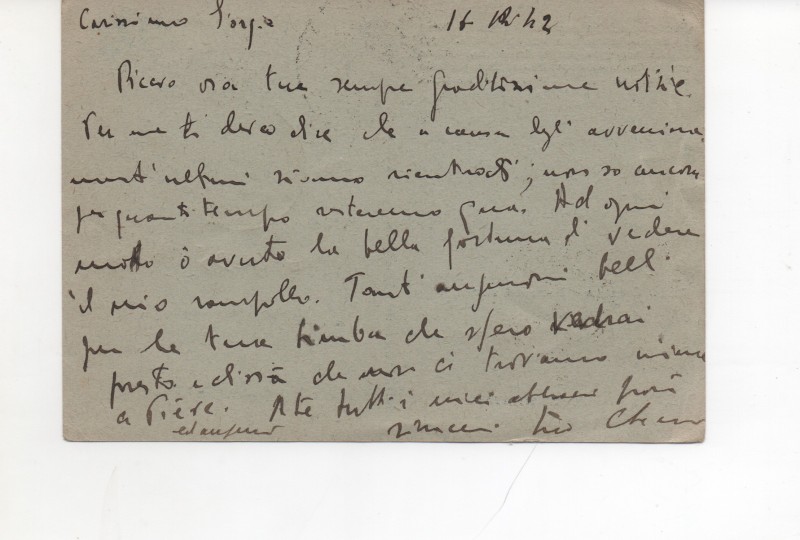 Carissimo Giorgio 16 XII 42
Ricevo ora tue sempre graditissime notizie.
Per me ti devo dire che a causa degli avvenimenti
ultimi siamo rientrati; non so ancora
per quanto tempo resteremo qua. Ad ogni
modo ò avuto la bella fortuna di vedere
il mio rampollo. Tanti auguroni belli
per la tua bimba che spero vedrai
presto e dirà che non ci troviamo
a Piève. A te tutti i miei abbracci più
ed auguri sinceri. tuo